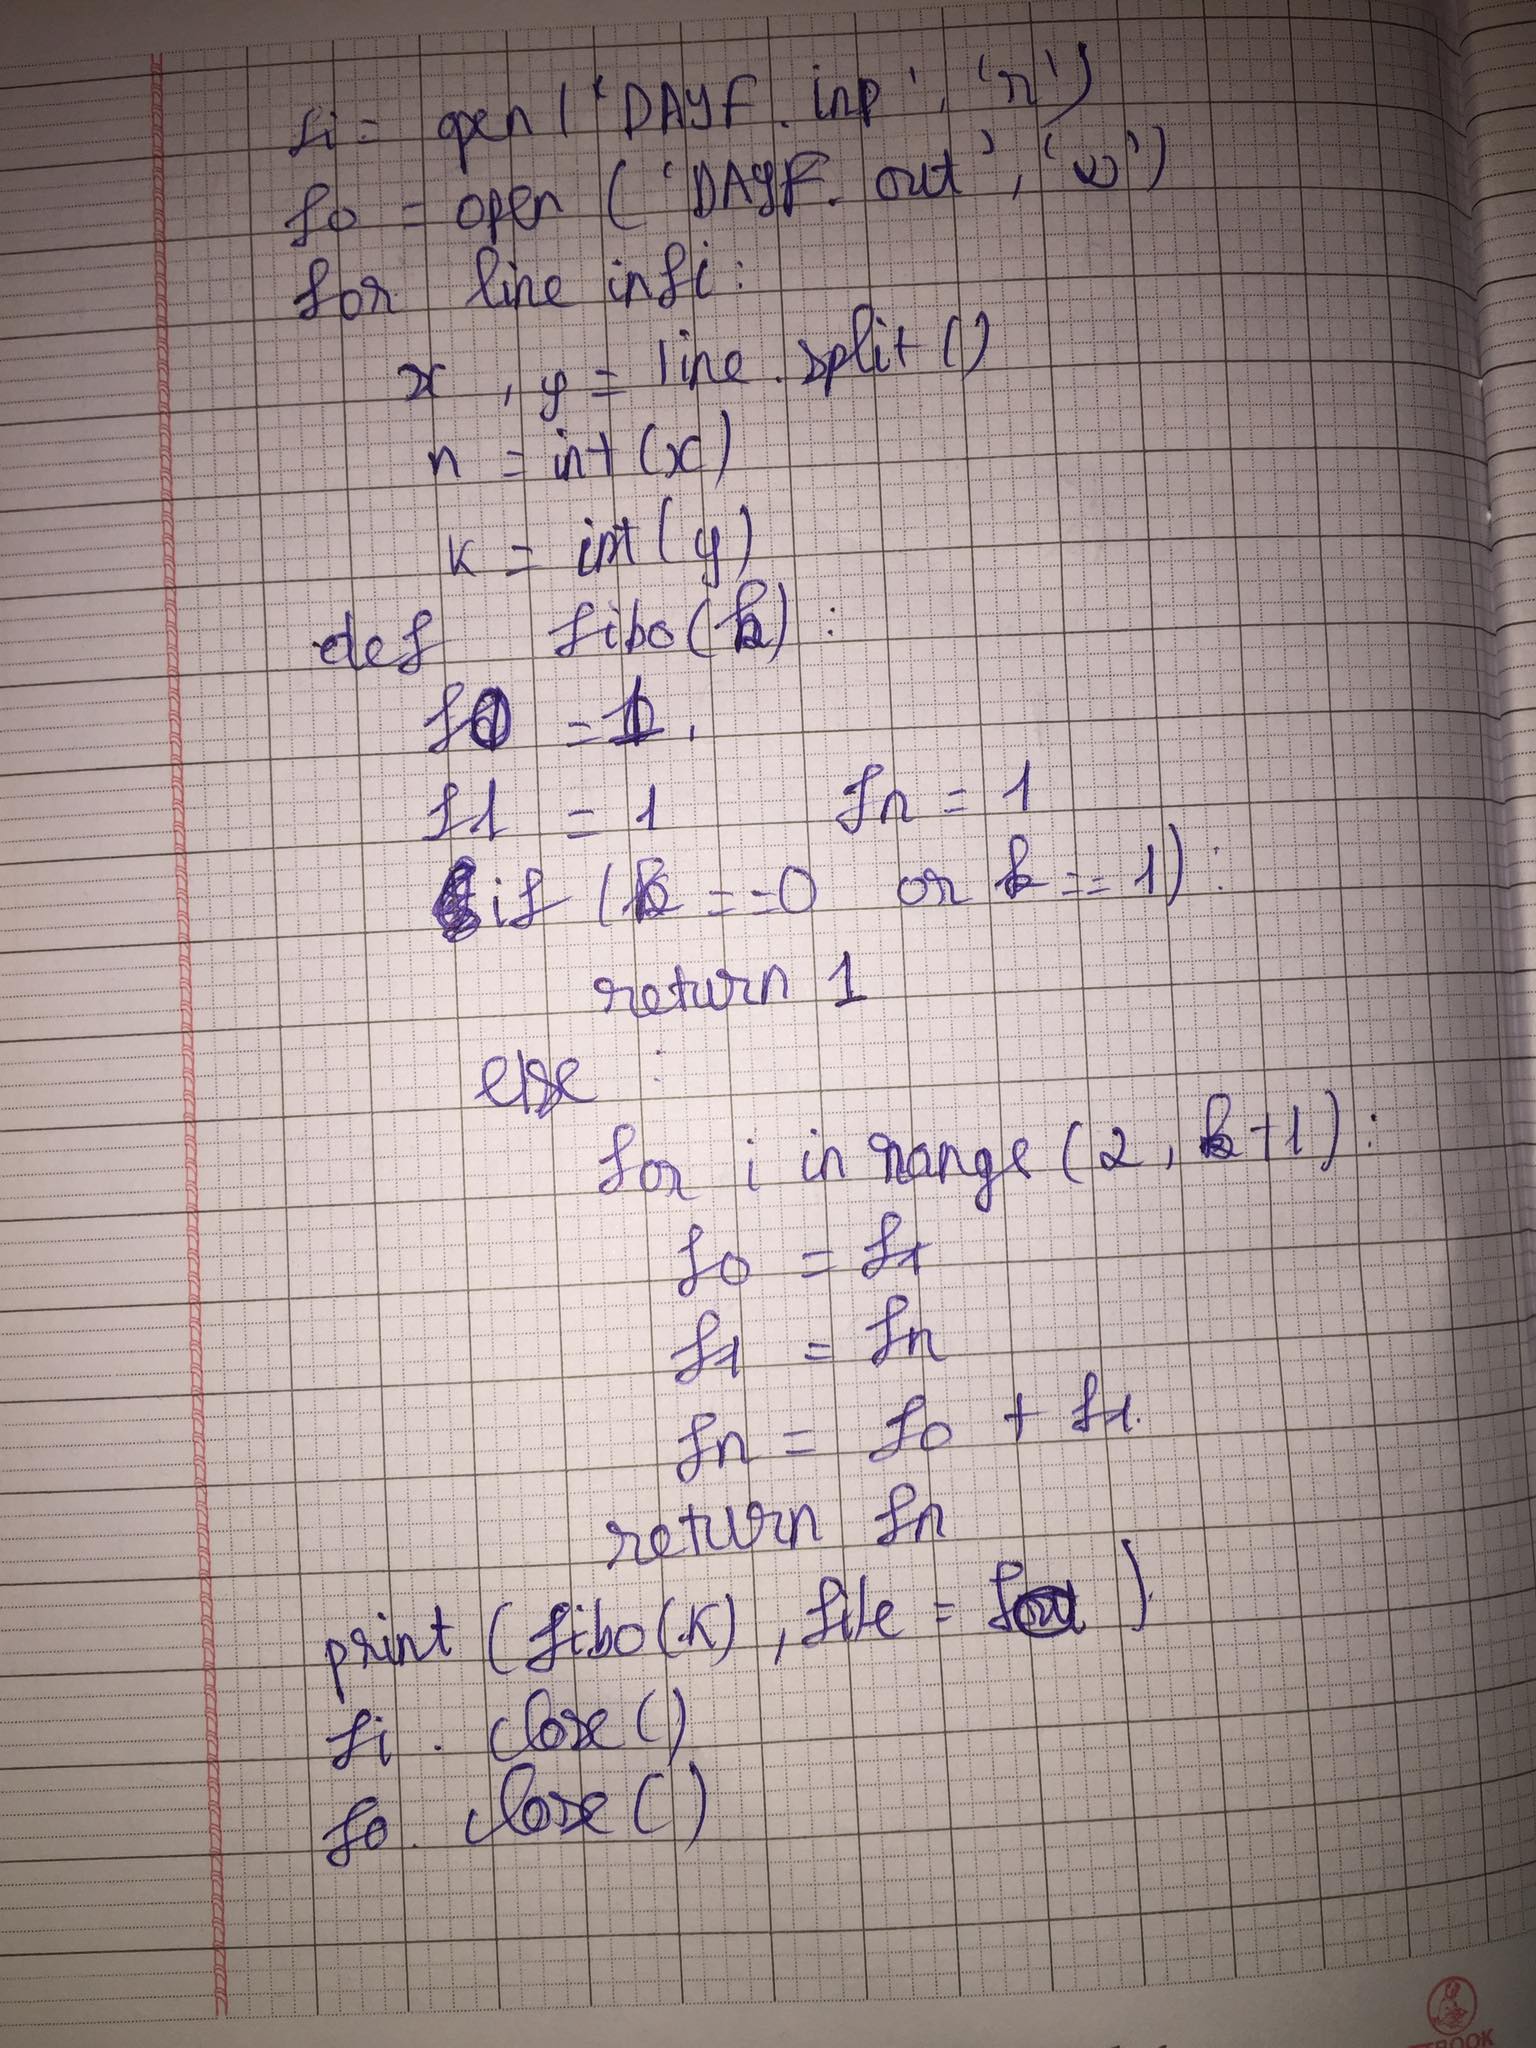 fi = open ('DAYF.inp', 'r')
fo = open ('DAYF.out', 'w')
for line in fi:
x, y = line.split()
n = int(x)
k = int(y)
def fibo(k):
f0 = 1
f1 = 1 fn = 1
if (k == 0 or k == 1):
return 1
else :
for i in range (2, k+1):
f0 = f1
f1 = fn
fn = f0 + f1
return fn
print (fibo(k), file = fo)
fi. close()
fo. close()